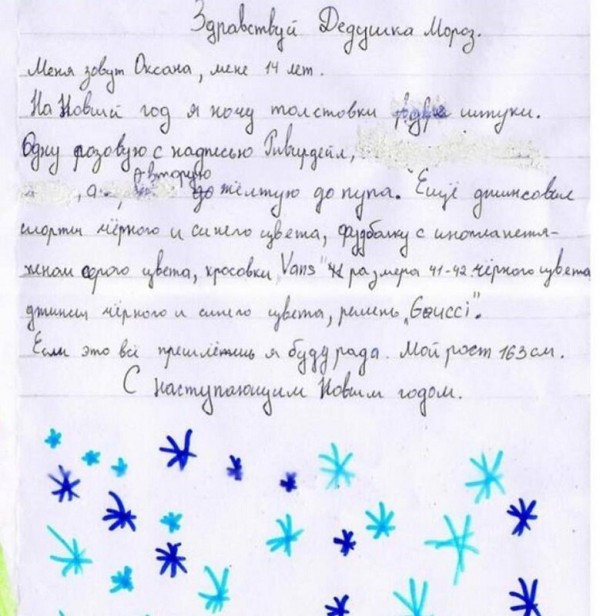 Здравствуй Дедушка Мороз.
Меня зовут Оксана, мене 14 лет.
На Новый год я хочу толстовки две штуки.
Одну розовую с надписью Ривирдейл,
, а вторую жёлтую до пупа. Ещё джинсовые
шорты чёрного и синего цвета, футболку с инопланетя-
неном серого цвета, кросовки „Vans" размера 41-42 чёрного цвета
джинсы чёрного и синего цвета, ремень „Guucci".
Если это всё пришлётишь я буду рада. Мой рост 163 см.
С наступающим Новым годом.